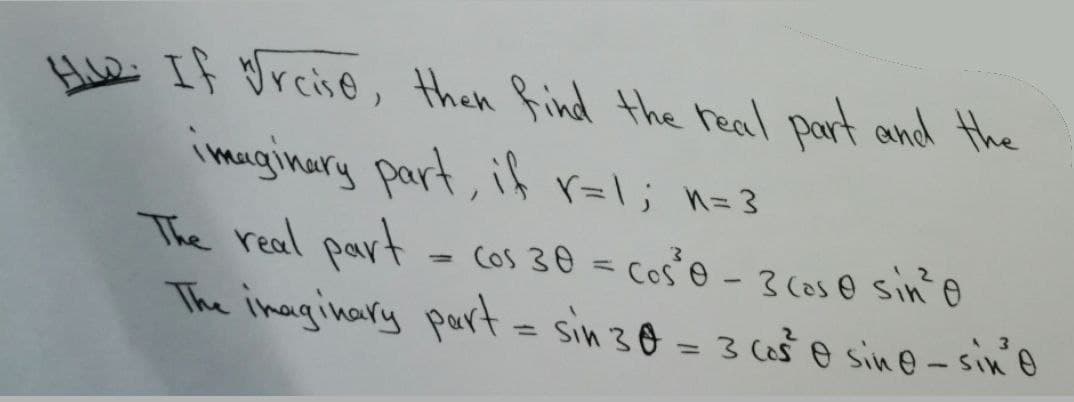 H.W: If ⁿ√rcisθ, then find the real part and the
imaginary part, if r=1; n=3
The real part = cos 3θ = cos³θ - 3 cos θ sin²θ
The imaginary part = sin 3θ = 3 cos²θ sin θ - sin³θ